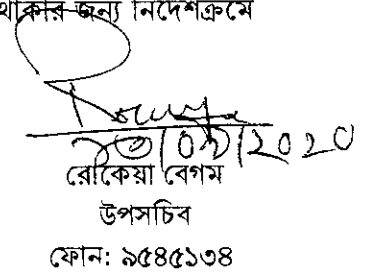 থাকার জন্য নির্দেশক্রমে
রোকেয়া বেগম
উপসচিব
ফোন: ৯৫৪৫১৩৪